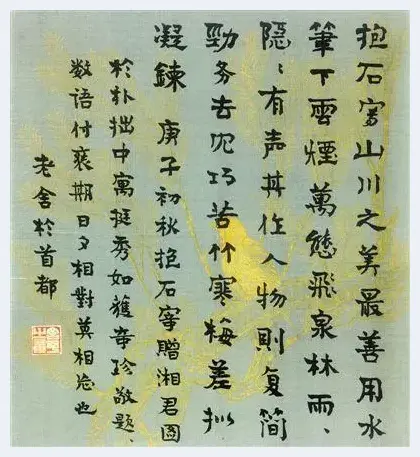 抱石寫山川之美最善用水
筆下雲煙萬態飛泉林雨、
隐、有声其作人物則复简
勁务去冗巧苦竹寒梅差拟
凝鍊 庚子初秋抱石寫赠湘君图
於朴拙中寓挺秀如獲奇珍敬題、
数语付裱期日夕相對莫相忘也
老舍於首都